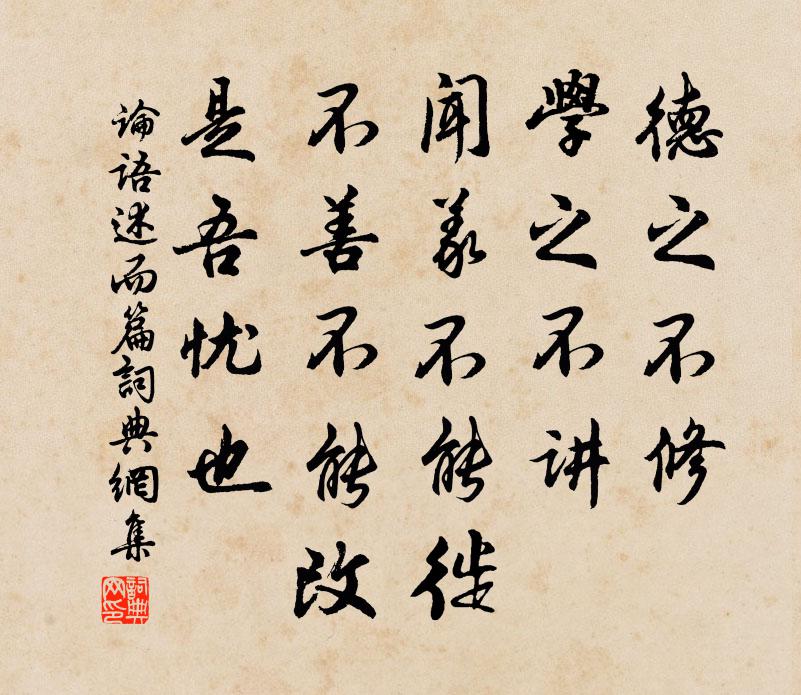 德之不修
學之不讲
闻義不能徙
不善不能改
是吾忧也
論语述而篇詞典網集
詞典网印